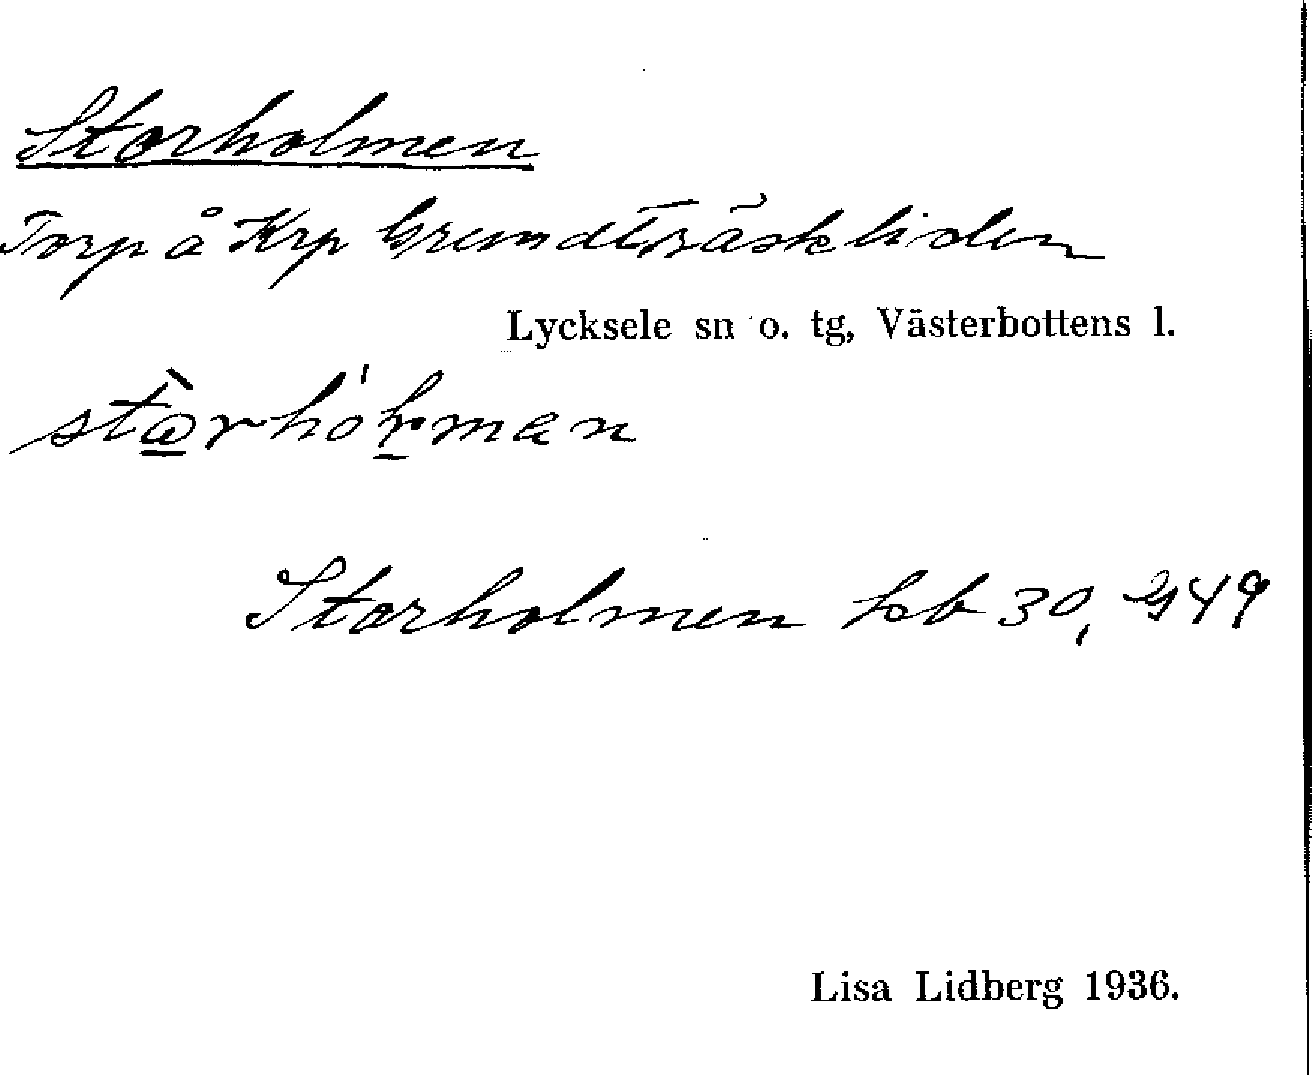 Storholmen
Torp å Krp Grundträskliden
Lycksele sn o. tg, Västerbottens l.
Storholmen kb 30, G49
Lisa Lidberg 1936.